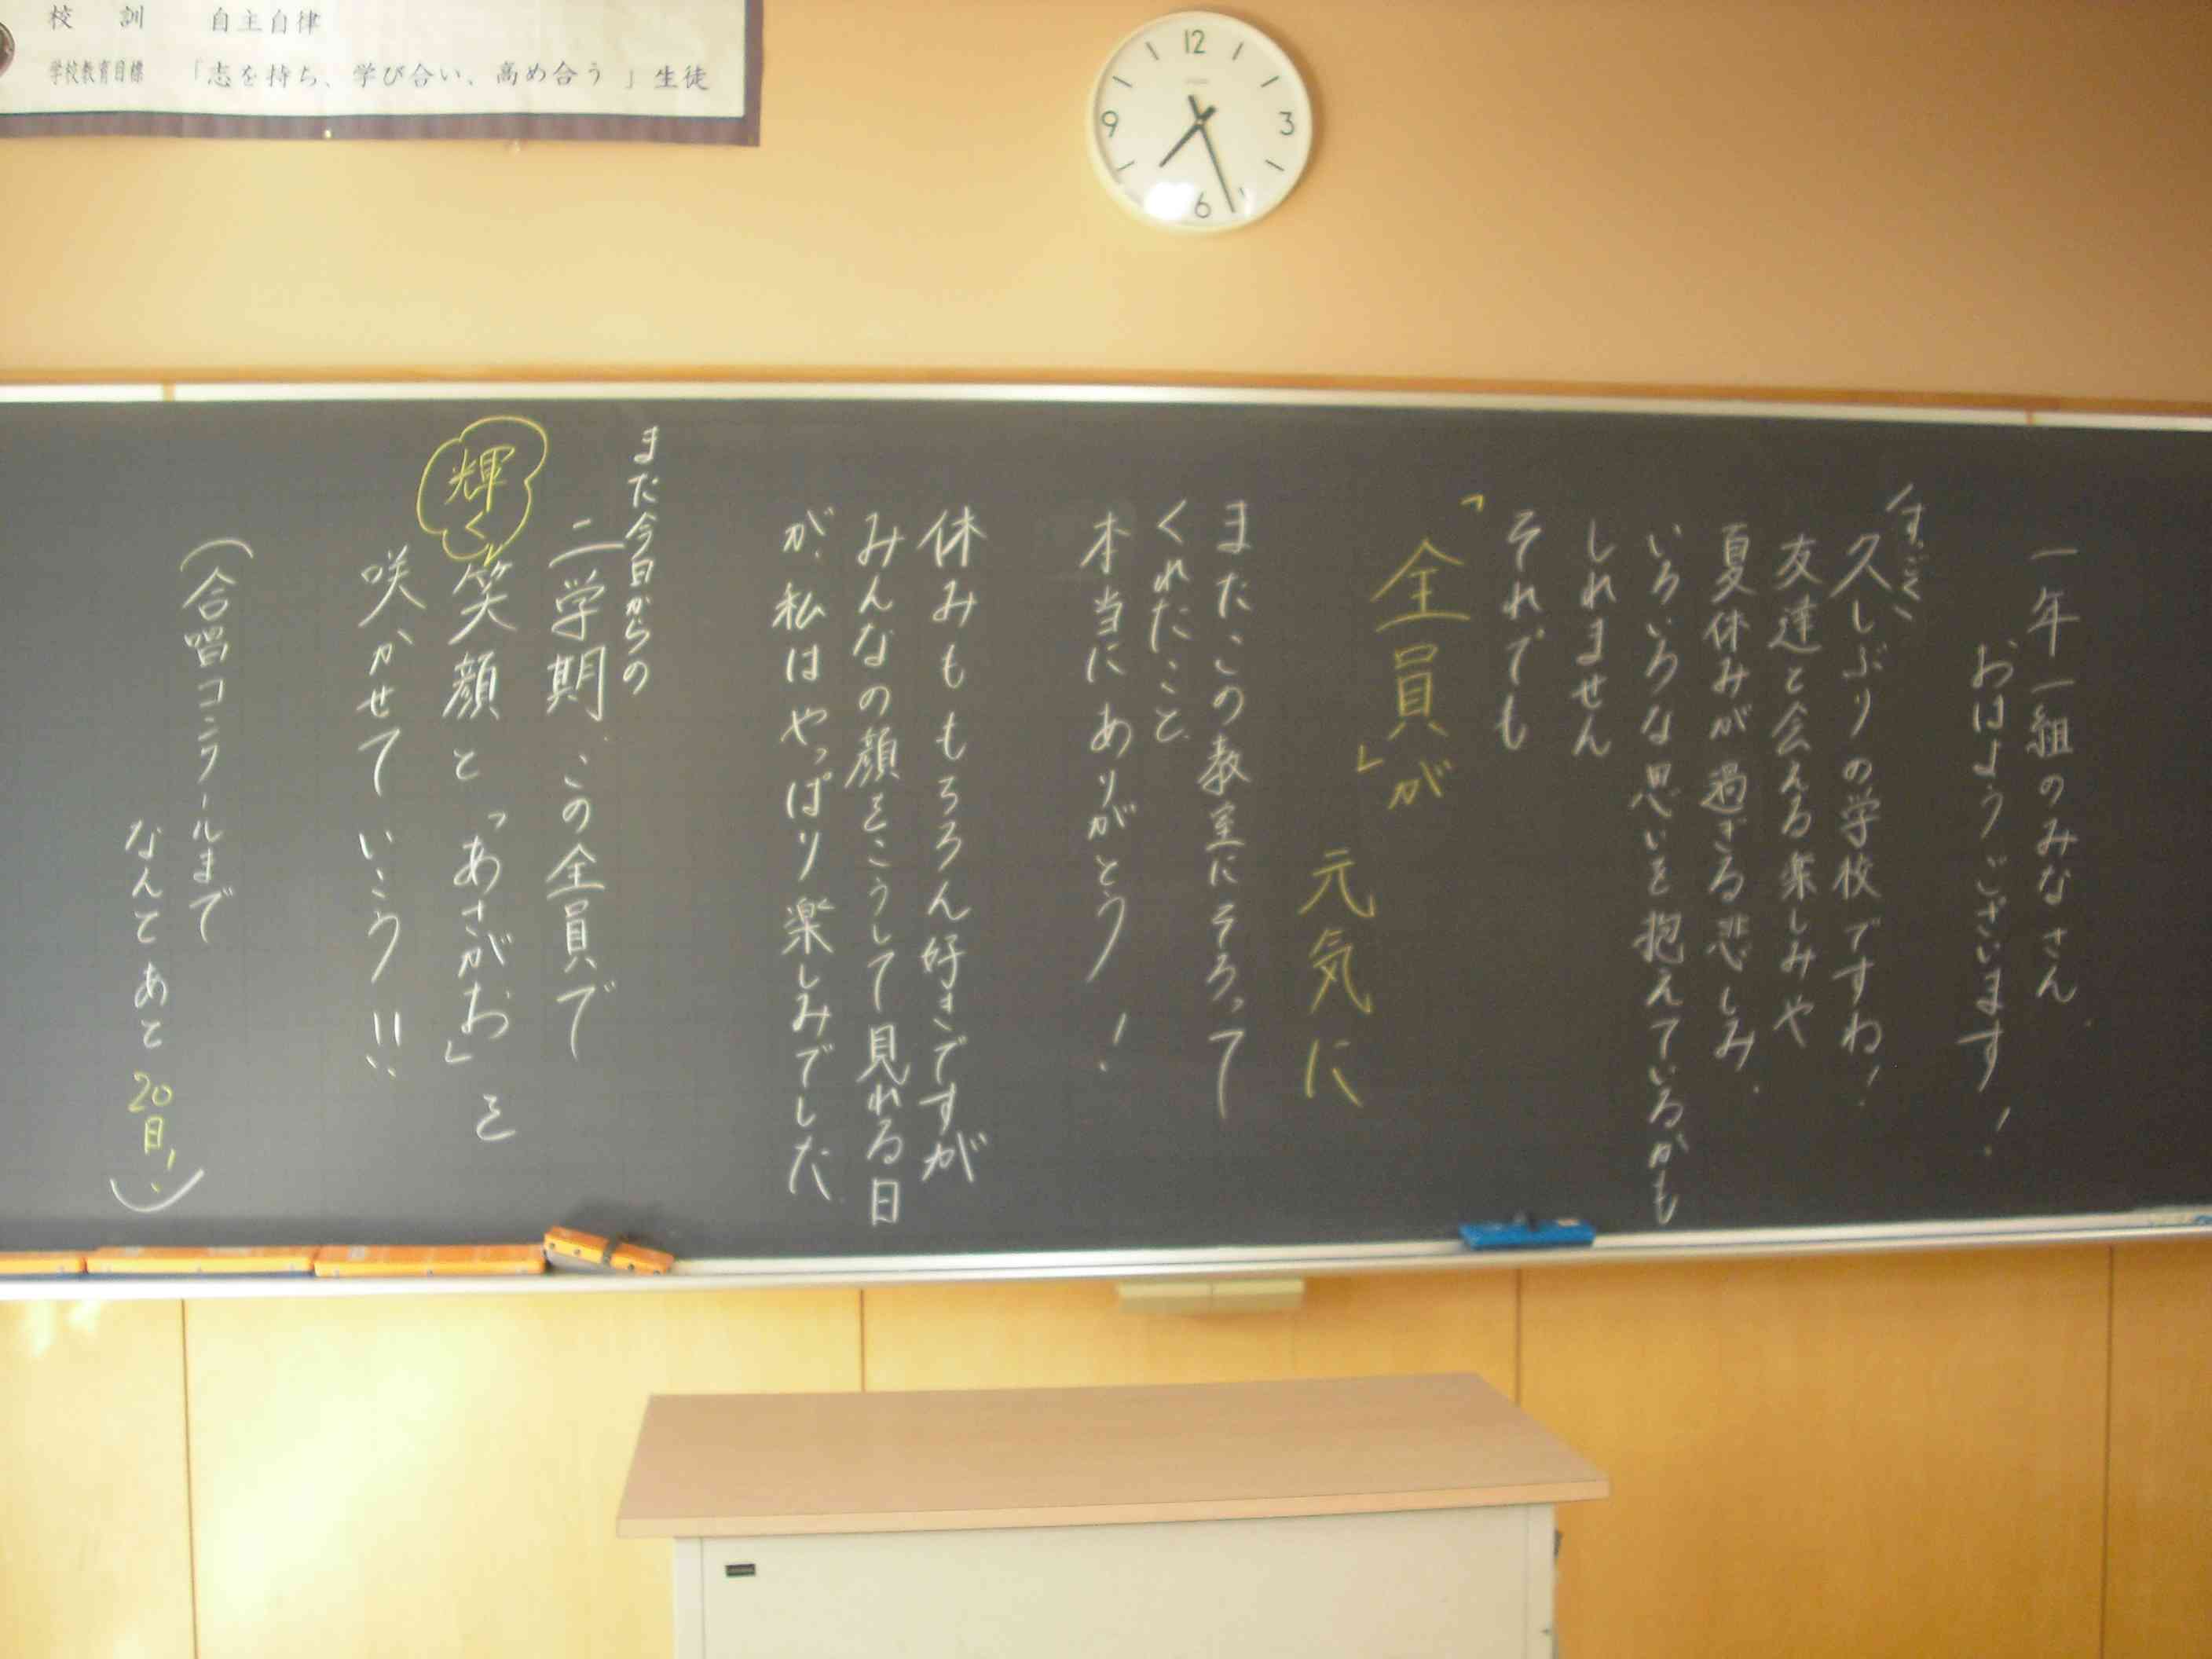 校訓 自主自律
学校教育目標 「志を持ち、学び合い、高め合う」生徒
12
3
6
9
一年一組のみなさん
おはようございます!
すっごく
久しぶりの学校ですね!
友達と会える楽しみや
夏休みが過ぎる悲しみ、
いろいろな思いを抱えているかも
しれません
それでも
「全員」が
元気に
またこの教室にそろって
くれたこと、
本当にありがとう!
休みももちろん好きですが
みんなの顔をこうして見れる日
が、私はやっぱり楽しみでした
また今日からの
二学期、この全員で
輝く笑顔と「あさがお」を
咲かせていこう!!
(合唱コンクールまで
なんとあと20日!)